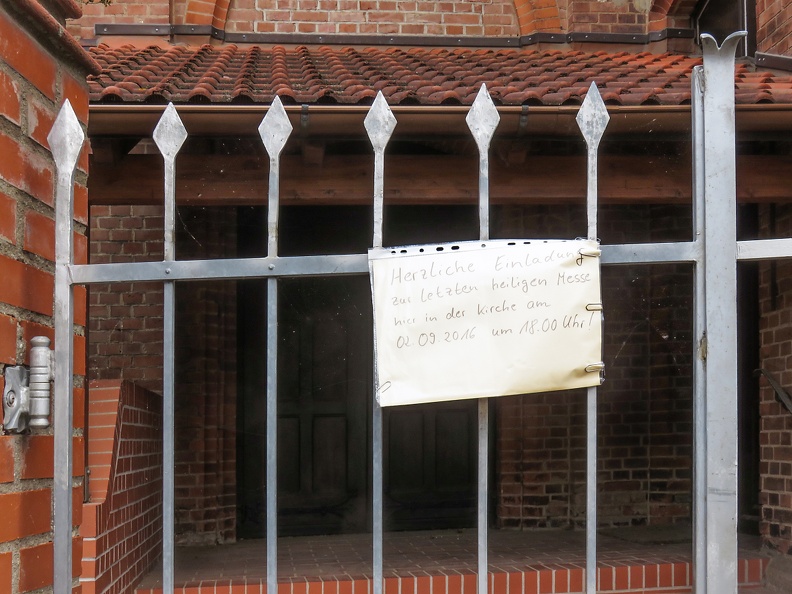 Herzliche Einladung
zur letzten heiligen Messe
hier in der Kirche am
02.09.2016 um 18.00 Uhr!